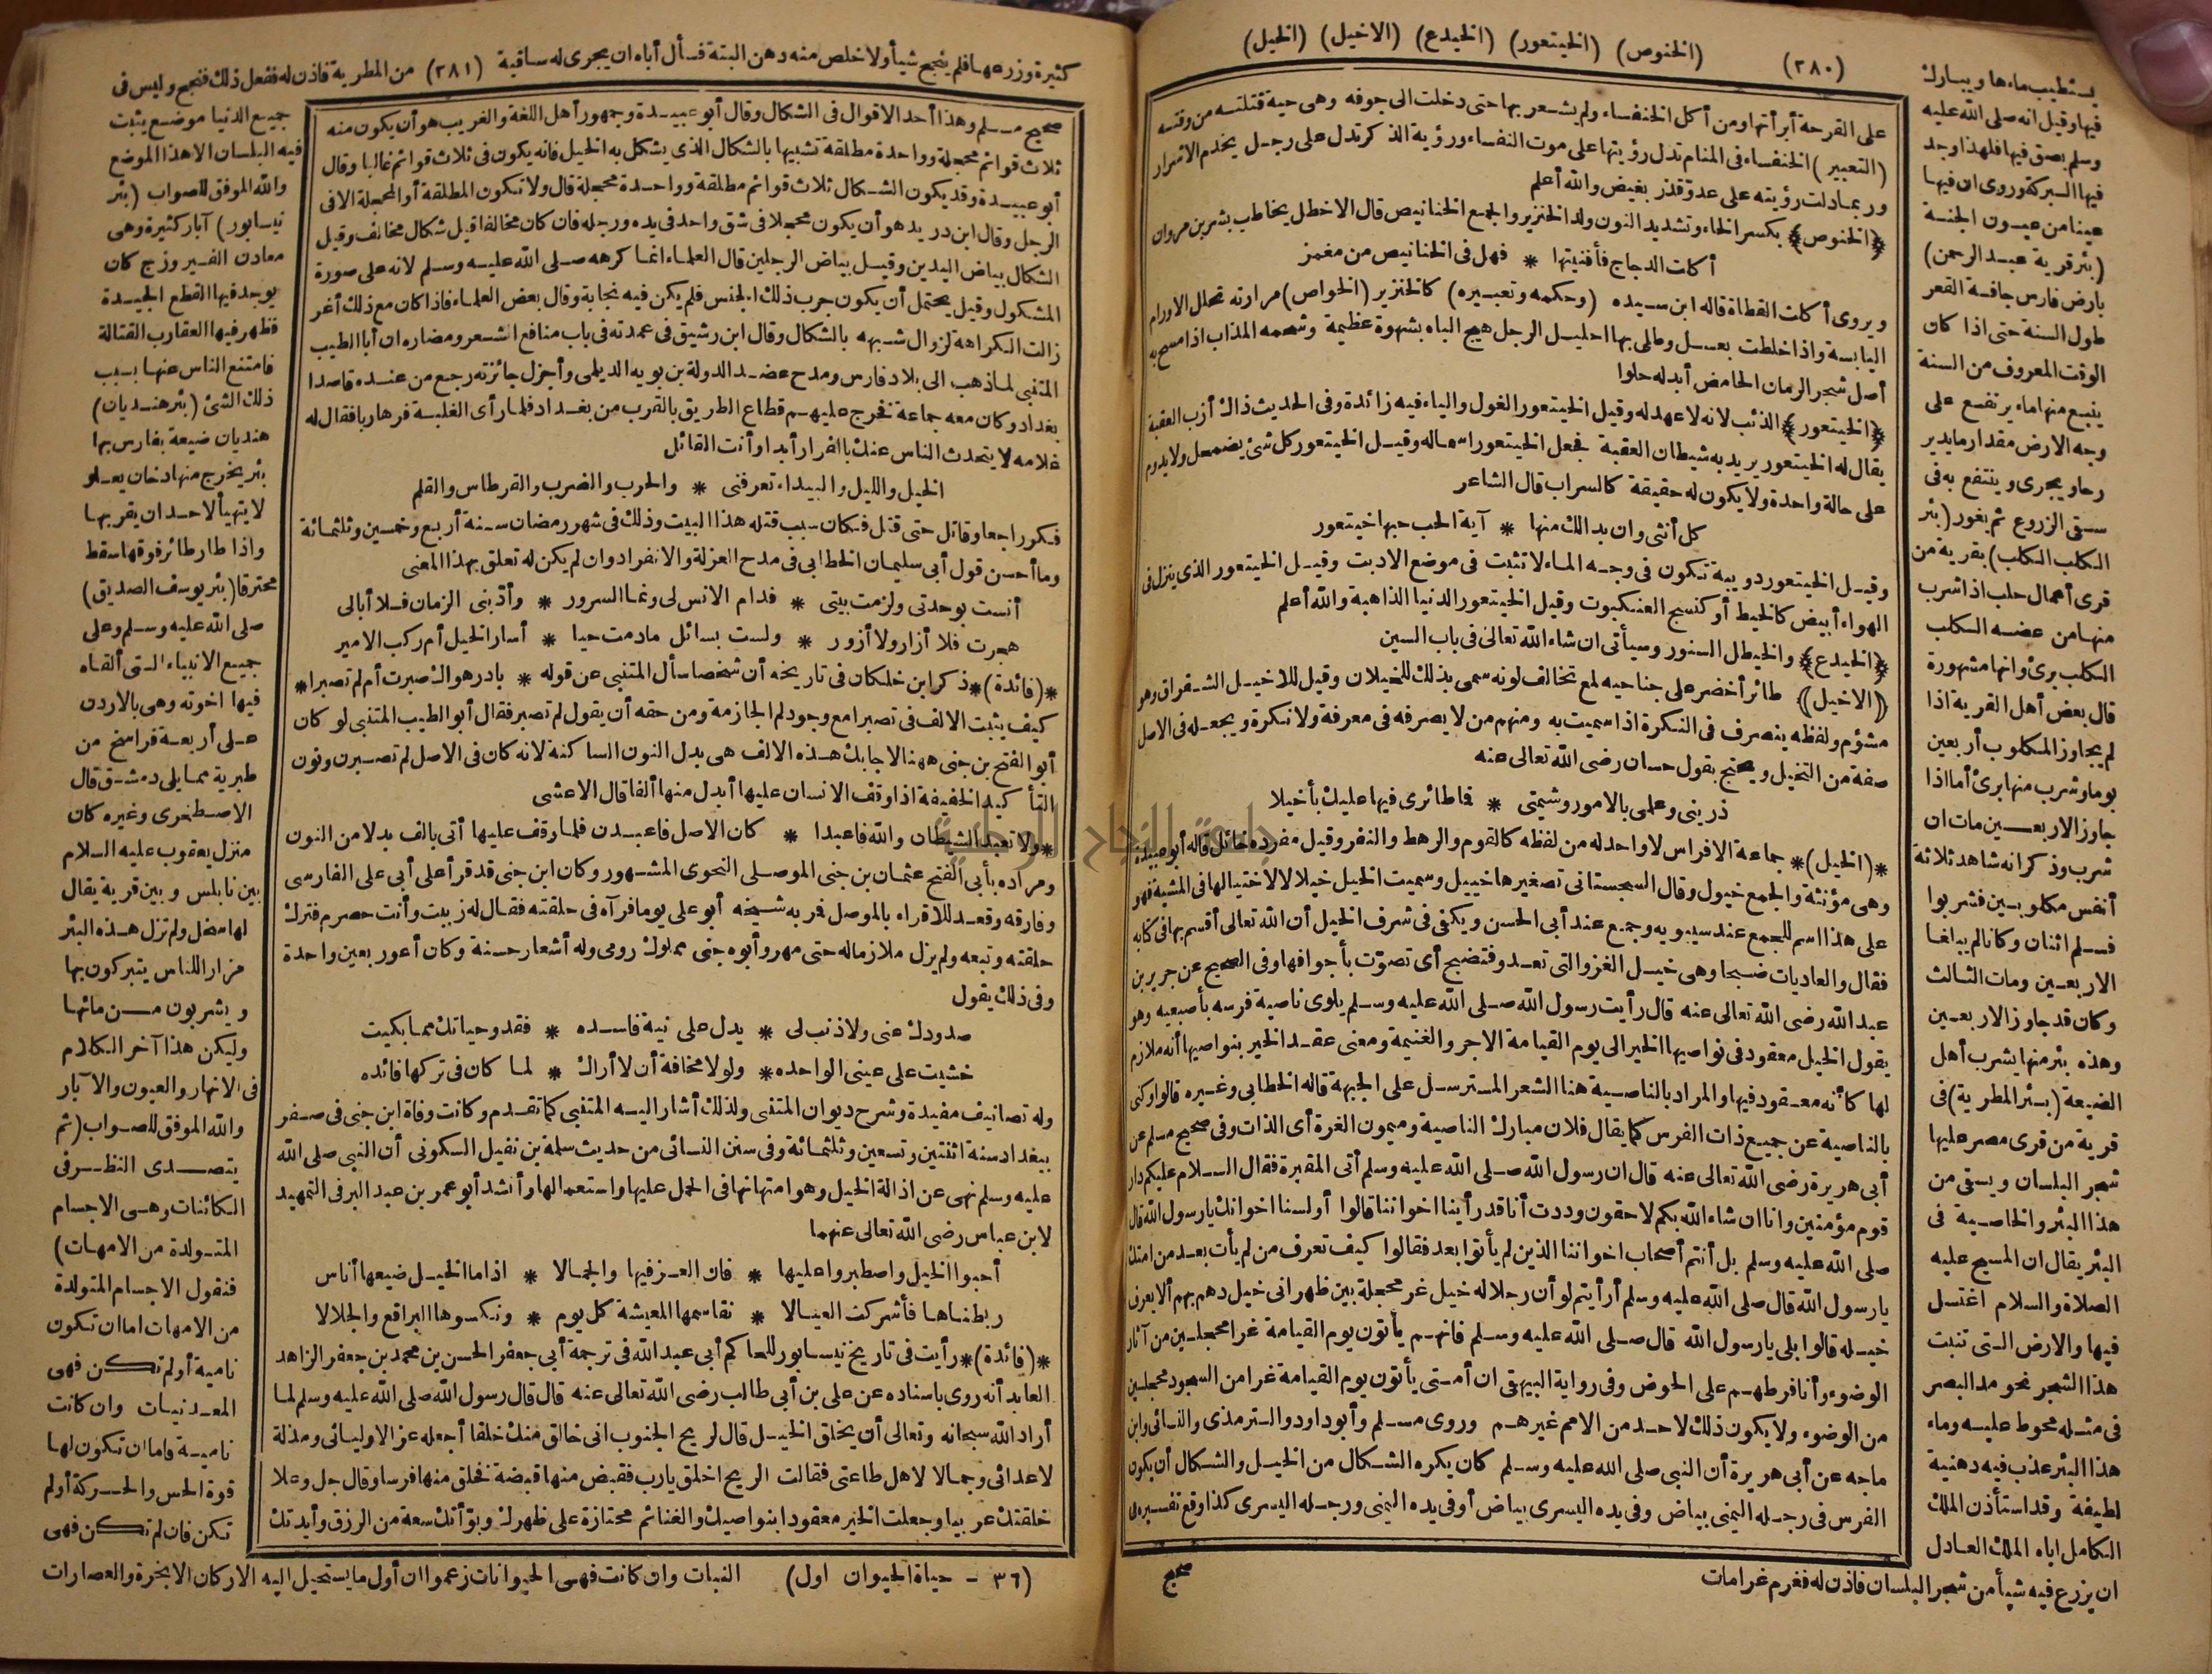 (٢٨٠) (الخنوص) (الخيتعور) (الخيدع) (الاخيل) (الخيل)
على القرحة أبرأتها ومن أكل الخنفساء ولم يشعر بها حتى دخلت الى جوفه وهى حية قتلته من وقته
(التعبير) الخنفساء فى المنام تدل رؤيتها على موت النفساء ورؤية الذكر تدل على رجل يخدم الاشرار
وربما دلت رؤيته على عدوّ قذر بغيض والله أعلم
﴿الخنوص﴾ بكسر الخاء وتشديد النون ولد الخنزير والجمع الخنانيص قال الاخطل يخاطب بشر بن مروان
أكلت الدجاج فأفنيتها * فهل فى الخنانيص من مغمز
ويروى أكلت القطاة قاله ابن سيده (وحكمه وتعبيره) كالخنزير (الخواص) مرارته تحلل الاورام
اليابسة واذا خلطت بعسل وطلى بها احليل الرجل هيج الباه بشهوة عظيمة وشحمه المذاب اذا مسح به
أصل شجر الرمان الحامض أبدله حلوا
﴿الخيتعور﴾ الذئب لانه لا عهد له وقيل الخيتعور الغول والياء فيه زائدة وفى الحديث ذاك أزب العقبة
يقال له الخيتعور يريد به شيطان العقبة فجعل الخيتعور اسما له وقيل الخيتعور كل شئ يضمحل ولا يدوم
على حالة واحدة ولا يكون له حقيقة كالسراب قال الشاعر
كل أنثى وان بدا لك منها * آية الحب حبها خيتعور
وقيل الخيتعور دويبة تكون فى وجه الماء لا تثبت فى موضع الا دبت وقيل الخيتعور الذى ينزل فى
الهواء أبيض كالخيط أو كنسج العنكبوت وقيل الخيتعور الدنيا الذاهبة والله أعلم
﴿الخيدع﴾ والخيطل السنور وسيأتى ان شاء الله تعالى فى باب السين
﴿الاخيل﴾ طائر أخضر على جناحيه لمع تخالف لونه سمى بذلك للخيلان وقيل للاخيل الشقراق وهو
مشؤم ولفظه ينصرف فى النكرة اذا سميت به ومنهم من لا يصرفه فى معرفة ولا نكرة ويجعله فى الاصل
صفة من التخيل ويحتج بقول حسان رضى الله تعالى عنه
ذرينى وعلمى بالامور وشيمتى * فما طائرى فيها عليك بأخيلا
*(الخيل)* جماعة الافراس لا واحد له من لفظه كالقوم والرهط والنفر وقيل مفرده خائل قاله أبو عبيدة
وهى مؤنثة والجمع خيول وقال السجستانى تصغيرها خييل وسميت الخيل خيلا لاختيالها فى المشية فهو
على هذا اسم للجمع عند سيبويه وجمع عند أبى الحسن ويكفى فى شرف الخيل أن الله تعالى أقسم بها فى كتابه
فقال والعاديات ضبحا وهى خيل الغزو التى تعدو فتضبح أى تصوّت بأجوافها وفى الصحيح عن جرير بن
عبد الله رضى الله تعالى عنه قال رأيت رسول الله صلى الله عليه وسلم يلوى ناصية فرسه بأصبعيه وهو
يقول الخيل معقود فى نواصيها الخير الى يوم القيامة الاجر والغنيمة ومعنى عقد الخير بنواصيها أنه ملازم
لها كأنه معقود فيها والمراد بالناصية هنا الشعر المسترسل على الجبهة قاله الخطابى وغيره قالوا وكنى
بالناصية عن جميع ذات الفرس كما يقال فلان مبارك الناصية وميمون الغرة أى الذات وفى صحيح مسلم عن
أبى هريرة رضى الله تعالى عنه قال ان رسول الله صلى الله عليه وسلم أتى المقبرة فقال السلام عليكم دار
قوم مؤمنين وانا ان شاء الله بكم لاحقون وددت أنا قد رأينا اخواننا قالوا أولسنا اخوانك يا رسول الله قال
صلى الله عليه وسلم بل أنتم أصحاب اخواننا الذين لم يأتوا بعد فقالوا كيف تعرف من لم يأت بعد من امتك
يا رسول الله قال صلى الله عليه وسلم أرأيتم لو أن رجلا له خيل غر محجلة بين ظهرانى خيل دهم بهم ألا يعرف
خيله قالوا بلى يا رسول الله قال صلى الله عليه وسلم فانهم يأتون يوم القيامة غرا محجلين من آثار
الوضوء وأنا فرطهم على الحوض وفى رواية البيهقى ان أمتى يأتون يوم القيامة غرا من السجود محجلين
من الوضوء ولا يكون ذلك لاحد من الامم غيرهم وروى مسلم وأبو داود والترمذى والنسائى وابن
ماجه عن أبى هريرة أن النبى صلى الله عليه وسلم كان يكره الشكال من الخيل والشكال أن يكون
الفرس فى رجله اليمنى بياض وفى يده اليسرى بياض أو فى يده اليمنى ورجله اليسرى كذا وقع تفسيره فى
صحيح
يستطيب ماءها ويبارك
فيها وقيل انه صلى الله عليه
وسلم بصق فيها فلهذا وجد
فيها البركة وروى ان فيها
عينا من عيون الجنة
(بئر قرية عبد الرحمن)
بارض فارس جافة القعر
طول السنة حتى اذا كان
الوقت المعروف من السنة
ينبع منها ماء يرتفع على
وجه الارض مقدار ما يدير
رحا ويجرى وينتفع به فى
سقى الزروع ثم يغور (بئر
الكلب الكلب) بقرية من
قرى أعمال حلب اذا شرب
منها من عضه الكلب
الكلب برئ وانها مشهورة
قال بعض أهل القرية اذا
لم يجاوز المكلوب أربعين
يوما وشرب منها برئ أما اذا
جاوز الاربعين مات ان
شرب وذكر انه شاهد ثلاثة
أنفس مكلوبين فشربوا
فسلم اثنان وكانا لم يبلغا
الاربعين ومات الثالث
وكان قد جاوز الاربعين
وهذه بئر منها شرب أهل
الضيعة (بئر المطرية) فى
قرية من قرى مصر عليها
شجر البلسان ويسقى من
هذا البئر والخاصية فى
البئر يقال ان المسيح عليه
الصلاة والسلام اغتسل
فيها والارض التى تنبت
هذا الشجر نحو مد البصر
فى مثله محوط عليه وماء
هذا البئر عذب فيه دهنية
لطيفة وقد استأذن الملك
الكامل اباه الملك العادل
ان يزرع فيه شيأ من شجر البلسان فاذن له فغرم غرامات
كثيرة وزرعها فلم ينجع شيأ ولا خلص منه دهن البتة فسأل أباه ان يجرى له ساقية (٢٨١) من المطرية فاذن له ففعل ذلك فنجع وليس فى
صحيح مسلم وهذا أحد الاقوال فى الشكال وقال أبو عبيدة وجمهور أهل اللغة والغريب هو أن يكون منه
ثلاث قوائم محجلة وواحدة مطلقة تشبيها بالشكال الذى يشكل به الخيل فانه يكون فى ثلاث قوائم غالبا وقال
أبو عبيدة وقد يكون الشكال ثلاث قوائم مطلقة وواحدة محجلة قال ولا تكون المطلقة أو المحجلة الا فى
الرجل وقال ابن دريد هو أن يكون محجلا فى شق واحد فى يده ورجله فان كان مخالفا قيل شكال مخالف وقيل
الشكال بياض اليدين وقيل بياض الرجلين قال العلماء انما كرهه صلى الله عليه وسلم لانه على صورة
المشكول وقيل يحتمل أن يكون جرب ذلك الجنس فلم يكن فيه نجابة وقال بعض العلماء فاذا كان مع ذلك أغر
زالت الكراهة لزوال شبهه بالشكال وقال ابن رشيق فى عمدته فى باب منافع الشعر ومضاره ان أبا الطيب
المتنبى لما ذهب الى بلاد فارس ومدح عضد الدولة بن بويه الديلمى وأجزل جائزته رجع من عنده قاصدا
بغداد وكان معه جماعة فخرج عليهم قطاع الطريق بالقرب من بغداد فلما رأى الغلبة فر هاربا فقال له
غلامه لا يتحدث الناس عنك بالفرار أبدا وأنت القائل
الخيل والليل والبيداء تعرفنى * والحرب والضرب والقرطاس والقلم
فكر راجعا وقاتل حتى قتل فكان سبب قتله هذا البيت وذلك فى شهر رمضان سنة أربع وخمسين وثلثمائة
وما أحسن قول أبى سليمان الخطابى فى مدح العزلة والانفراد وان لم يكن له تعلق بهذا المعنى
أنست بوحدتى ولزمت بيتى * فدام الانس لى ونما السرور * وأدّبنى الزمان فلا أبالى
هجرت فلا أزار ولا أزور * ولست بسائل ما دمت حيا * أسار الخيل أم ركب الامير
*(فائدة)* ذكر ابن خلكان فى تاريخه أن شخصا سأل المتنبى عن قوله * بادر هواك صبرت أم لم تصبرا *
كيف يثبت الالف فى تصبرا مع وجود لم الجازمة ومن حقه أن يقول لم تصبر فقال أبو الطيب المتنبى لو كان
أبو الفتح بن جنى ههنا لاجابك هذه الالف هى بدل النون الساكنة لانه كان فى الاصل لم تصبرن ونون
التأكيد الخفيفة اذا وقف الانسان عليها أبدل منها ألفا قال الاعشى
*ولا تعبد الشيطان والله فاعبدا * كان الاصل فاعبدن فلما وقف عليها أتى بالف بدلا من النون
ومراده بأبى الفتح عثمان بن جنى الموصلى النحوى المشهور وكان ابن جنى قد قرأ على أبى على الفارسى
وفارقه وقعد للاقراء بالموصل فمر به شيخه أبو على يوما فرآه فى حلقته فقال له زببت وأنت حصرم فترك
حلقته وتبعه ولم يزل ملازما له حتى مهر وأبوه جنى مملوك رومى وله أشعار حسنة وكان أعور بعين واحدة
وفى ذلك يقول
صدودك عنى ولا ذنب لى * يدل على نية فاسده * فقد وحياتك مما بكيت
خشيت على عينى الواحده * ولولا مخافة أن لا أراك * لما كان فى تركها فائده
وله تصانيف مفيدة وشرح ديوان المتنبى ولذلك أشار اليه المتنبى كما تقدم وكانت وفاة ابن جنى فى صفر
ببغداد سنة اثنتين وتسعين وثلثمائة وفى سنن النسائى من حديث سلمة بن نفيل السكونى أن النبى صلى الله
عليه وسلم نهى عن اذالة الخيل وهو امتهانها فى الحمل عليها واستعمالها وأنشد أبو عمر بن عبد البر فى التمهيد
لابن عباس رضى الله تعالى عنهما
أحبوا الخيل واصطبروا عليها * فان العز فيها والجمالا * اذا ما الخيل ضيعها أناس
ربطناها فأشركت العيالا * نقاسمها المعيشة كل يوم * ونكسوها البراقع والجلالا
*(فائدة)* رأيت فى تاريخ نيسابور للحاكم أبى عبد الله فى ترجمة أبى جعفر الحسن بن محمد بن جعفر الزاهد
العابد أنه روى باسناده عن على بن أبى طالب رضى الله تعالى عنه قال قال رسول الله صلى الله عليه وسلم لما
أراد الله سبحانه وتعالى أن يخلق الخيل قال لريح الجنوب انى خالق منك خلقا أجعله عزا لاوليائى ومذلة
لاعدائى وجمالا لاهل طاعتى فقالت الريح اخلق يا رب فقبض منها قبضة فخلق منها فرسا وقال جل وعلا
خلقتك عربيا وجعلت الخير معقودا بنواصيك والغنائم محتازة على ظهرك وبوّأتك سعة من الرزق وأيدتك
(٣٦ - حياة الحيوان اول)
جميع الدنيا موضع ينبت
فيه البلسان الا هذا الموضع
والله الموفق للصواب (بئر
نيسابور) آبار كثيرة وهى
معادن الفيروزج كان
يوجد فيها القطع الجيدة
فظهر فيها العقارب القتالة
فامتنع الناس عنها بسبب
ذلك الشئ (بئر هنديان)
هنديان ضيعة بفارس بها
بئر يخرج منها دخان يعلو
لا يتهيأ لاحد ان يقربها
واذا طار طائر فوقها سقط
محترقا (بئر يوسف الصديق)
صلى الله عليه وسلم وعلى
جميع الانبياء التى ألقاه
فيها اخوته وهى بالاردن
على أربعة فراسخ من
طبرية مما يلى دمشق قال
الاصطخرى وغيره كان
منزل يعقوب عليه السلام
بين نابلس وبين قرية يقال
لها سنجل ولم تزل هذه البئر
مزارا للناس يتبركون بها
ويشربون من مائها
وليكن هذا آخر الكلام
فى الانهار والعيون والآبار
والله الموفق للصواب (ثم
يتصدى النظر فى
الكائنات وهى الاجسام
المتولدة من الامهات)
فنقول الاجسام المتولدة
من الامهات اما ان تكون
نامية أو لم تكن فهى
المعدنيات وان كانت
نامية فاما ان تكون لها
قوة الحس والحركة أو لم
تكن فان لم تكن فهى
النبات وان كانت فهى الحيوانات زعموا ان أول ما يستحيل اليه الاركان الابخرة والعصارات
جامعة النجاح الوطنية